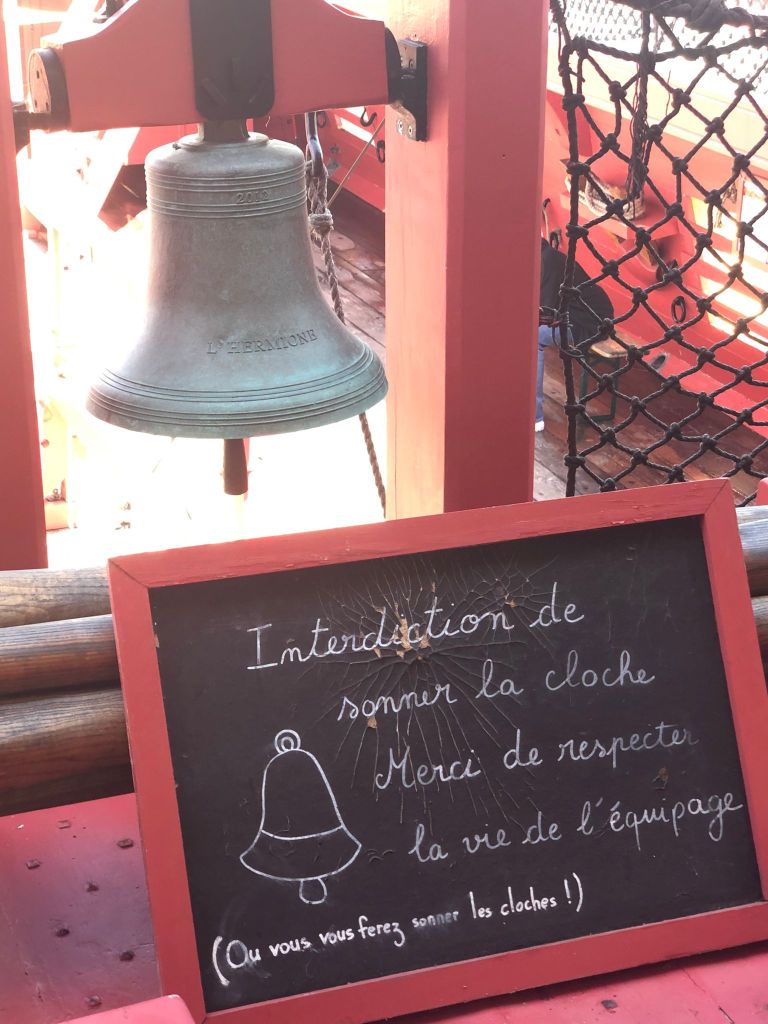 2012
L'HERMIONE
Interdiction de
sonner la cloche
Merci de respecter
la vie de l'équipage
(Ou vous vous ferez sonner les cloches !)